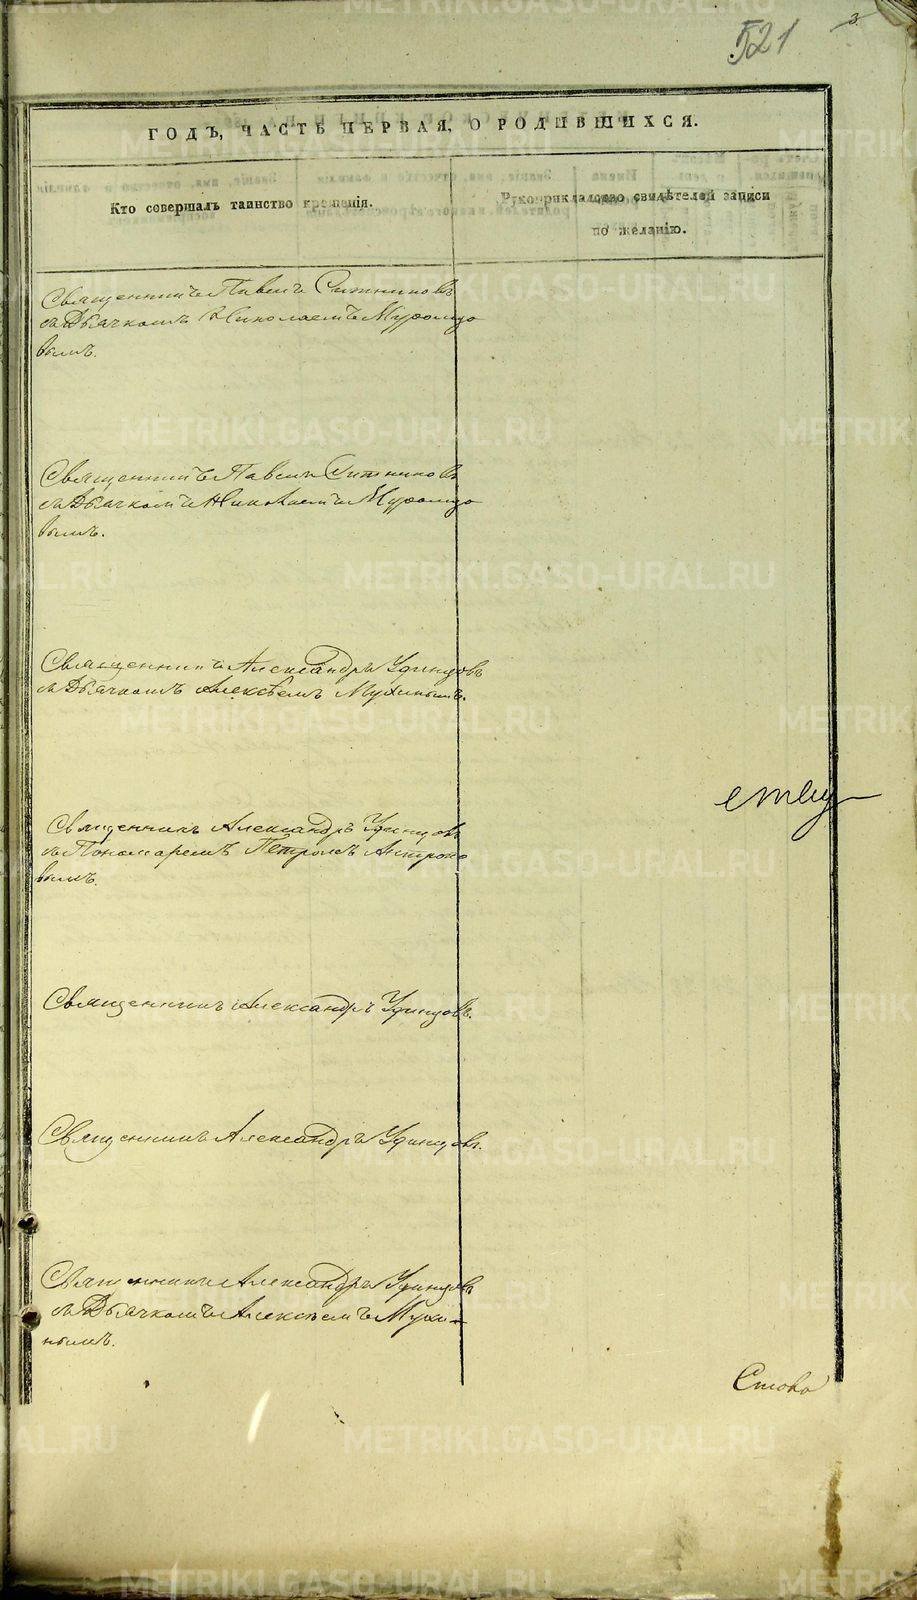 3
521
ГОДЪ, ЧАСТЬ ПЕРВАЯ, О РОДИВШИХСЯ.
Кто совершалъ таинство крещенія.
Рукоприкладство свидѣтелей записи
по желанію.
Священникъ Павелъ Ситниковъ
съ Дьячкомъ Николаемъ Муромцо
вымъ.
Священникъ Павелъ Ситниковъ
съ Дьячкомъ Николаемъ Муромцо
вымъ.
Священникъ Александръ Удинцовъ
съ Дьячкомъ Алексѣемъ Мухинымъ.
Священникъ Александръ Удинцовъ
съ Пономаремъ Петромъ Антропо
вымъ.
Священникъ Александръ Удинцовъ.
Священникъ Александръ Удинцовъ.
Священникъ Александръ Удинцовъ
съ Дьячкомъ Алексѣемъ Мухи-
нымъ.
METRIKI.GASO-URAL.RU